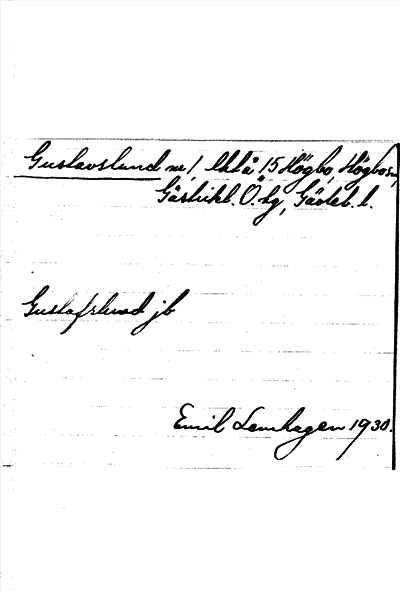 Gustavslund nr 1, lktå 15 Högbo, Högbo sn,
Gästrikl. Ö. hg, Gävleb. l.
Gustafslund jb
Emil Lemhagen 1930.